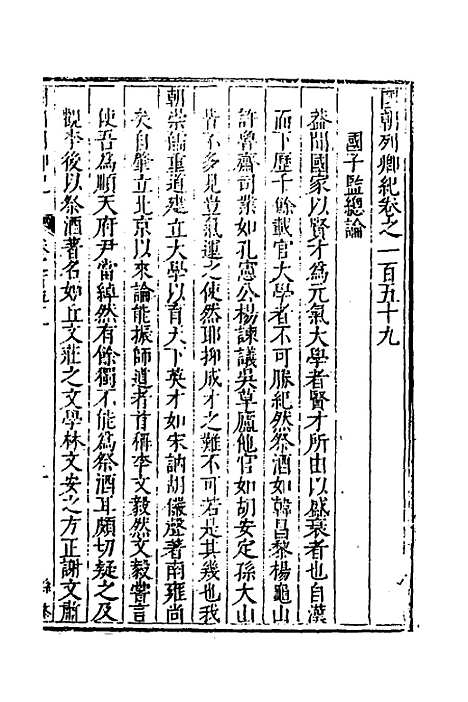 國朝列卿紀卷之一百五十九
國子監總論
蓋聞國家以賢才為元氣大學者賢才所由以盛衰者也自漢
而下歷千餘載官大學者不可勝紀然祭酒如韓昌黎楊龜山
許魯齋司業如孔憲公楊諫議吳草廬他官如胡安定孫大山
皆不多見豈氣運之使然耶抑成才之難不可若是其幾也我
朝崇儒重道建立大學以育天下英才如宋訥胡儼聲著南雍尚
矣自肇立北京以來論能振師道者首稱李文毅然文毅嘗言
使吾為順天府尹當綽然有餘獨不能為祭酒耳頗切疑之及
觀李後以祭酒著名如丘文莊之文學林文安之方正謝文肅